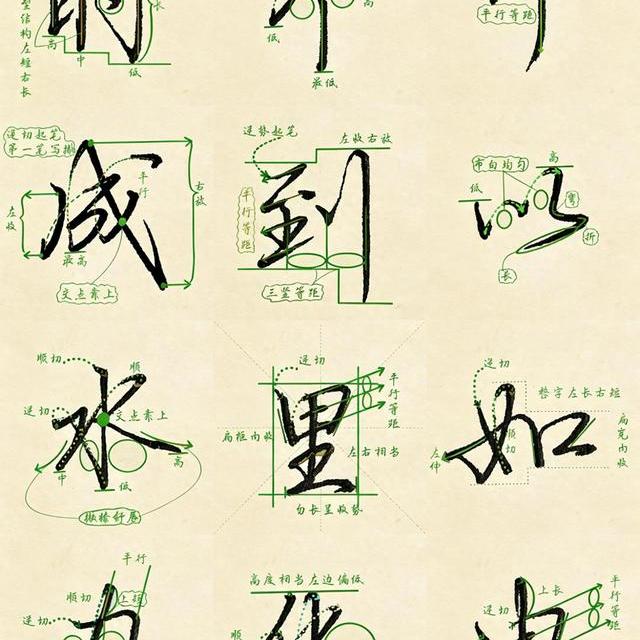 型结构左短右长
长
高
中
低
高
低
最低
平行等距
逆切起笔
第一笔写撇
成
平行
右放
左收
最高
交点靠上
逆势起笔
左收右放
到
平行等距
三竖等距
以
布白均匀
高
低
弯
折
长
顺切
顺
逆切
水
交点靠上
中
低
高
撇捺舒展
逆切
里
平行等距
扁框内收
左右相当
勿长呈收势
逆切
整字左长右短
如
顺切
左伸
扁宽内收
平行
顺切
上短
逆切
高度相当左边偏低
顺
上长
逆切
平行等距